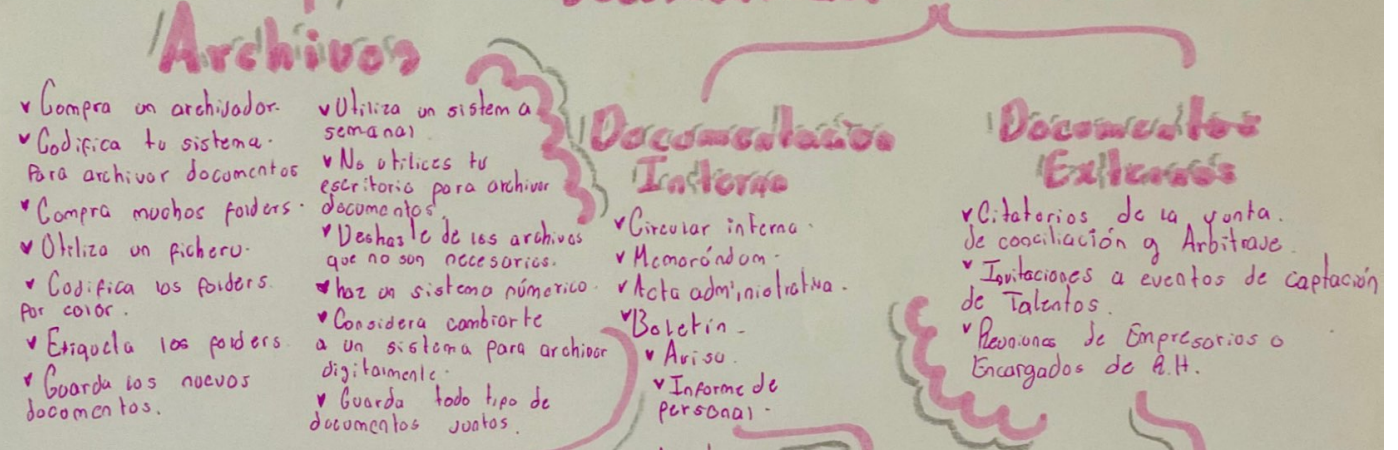 Archivos
✓ Compra un archivador.
✓ Codifica tu sistema.
Para archivar documentos
✓ Compra muchos folders.
✓ Utiliza un fichero.
✓ Codifica los folders.
Por color.
✓ Etiqueta los folders.
✓ Guarda los nuevos
documentos.
✓ Utiliza un sistema
semanal
✓ No utilices tu
escritorio para archivar
documentos.
✓ Deshasle de los archivos
que no son necesarios.
✓ haz un sistema númerico.
✓ Considera cambiarte
a un sistema para archivar
digitalmente.
✓ Guarda todo tipo de
documentos juntos.
Documentación
Interna
✓ Circular interna.
✓ Memorándum.
✓ Acta administrativa.
✓ Boletín.
✓ Aviso.
✓ Informe de
personal.
Documentos
Externos
✓ Citatorios de la yunta.
de conciliación y Arbitraje.
✓ Invitaciones a eventos de captación
de Talentos.
✓ Reuniones de Empresarios o
Encargados de R.H.